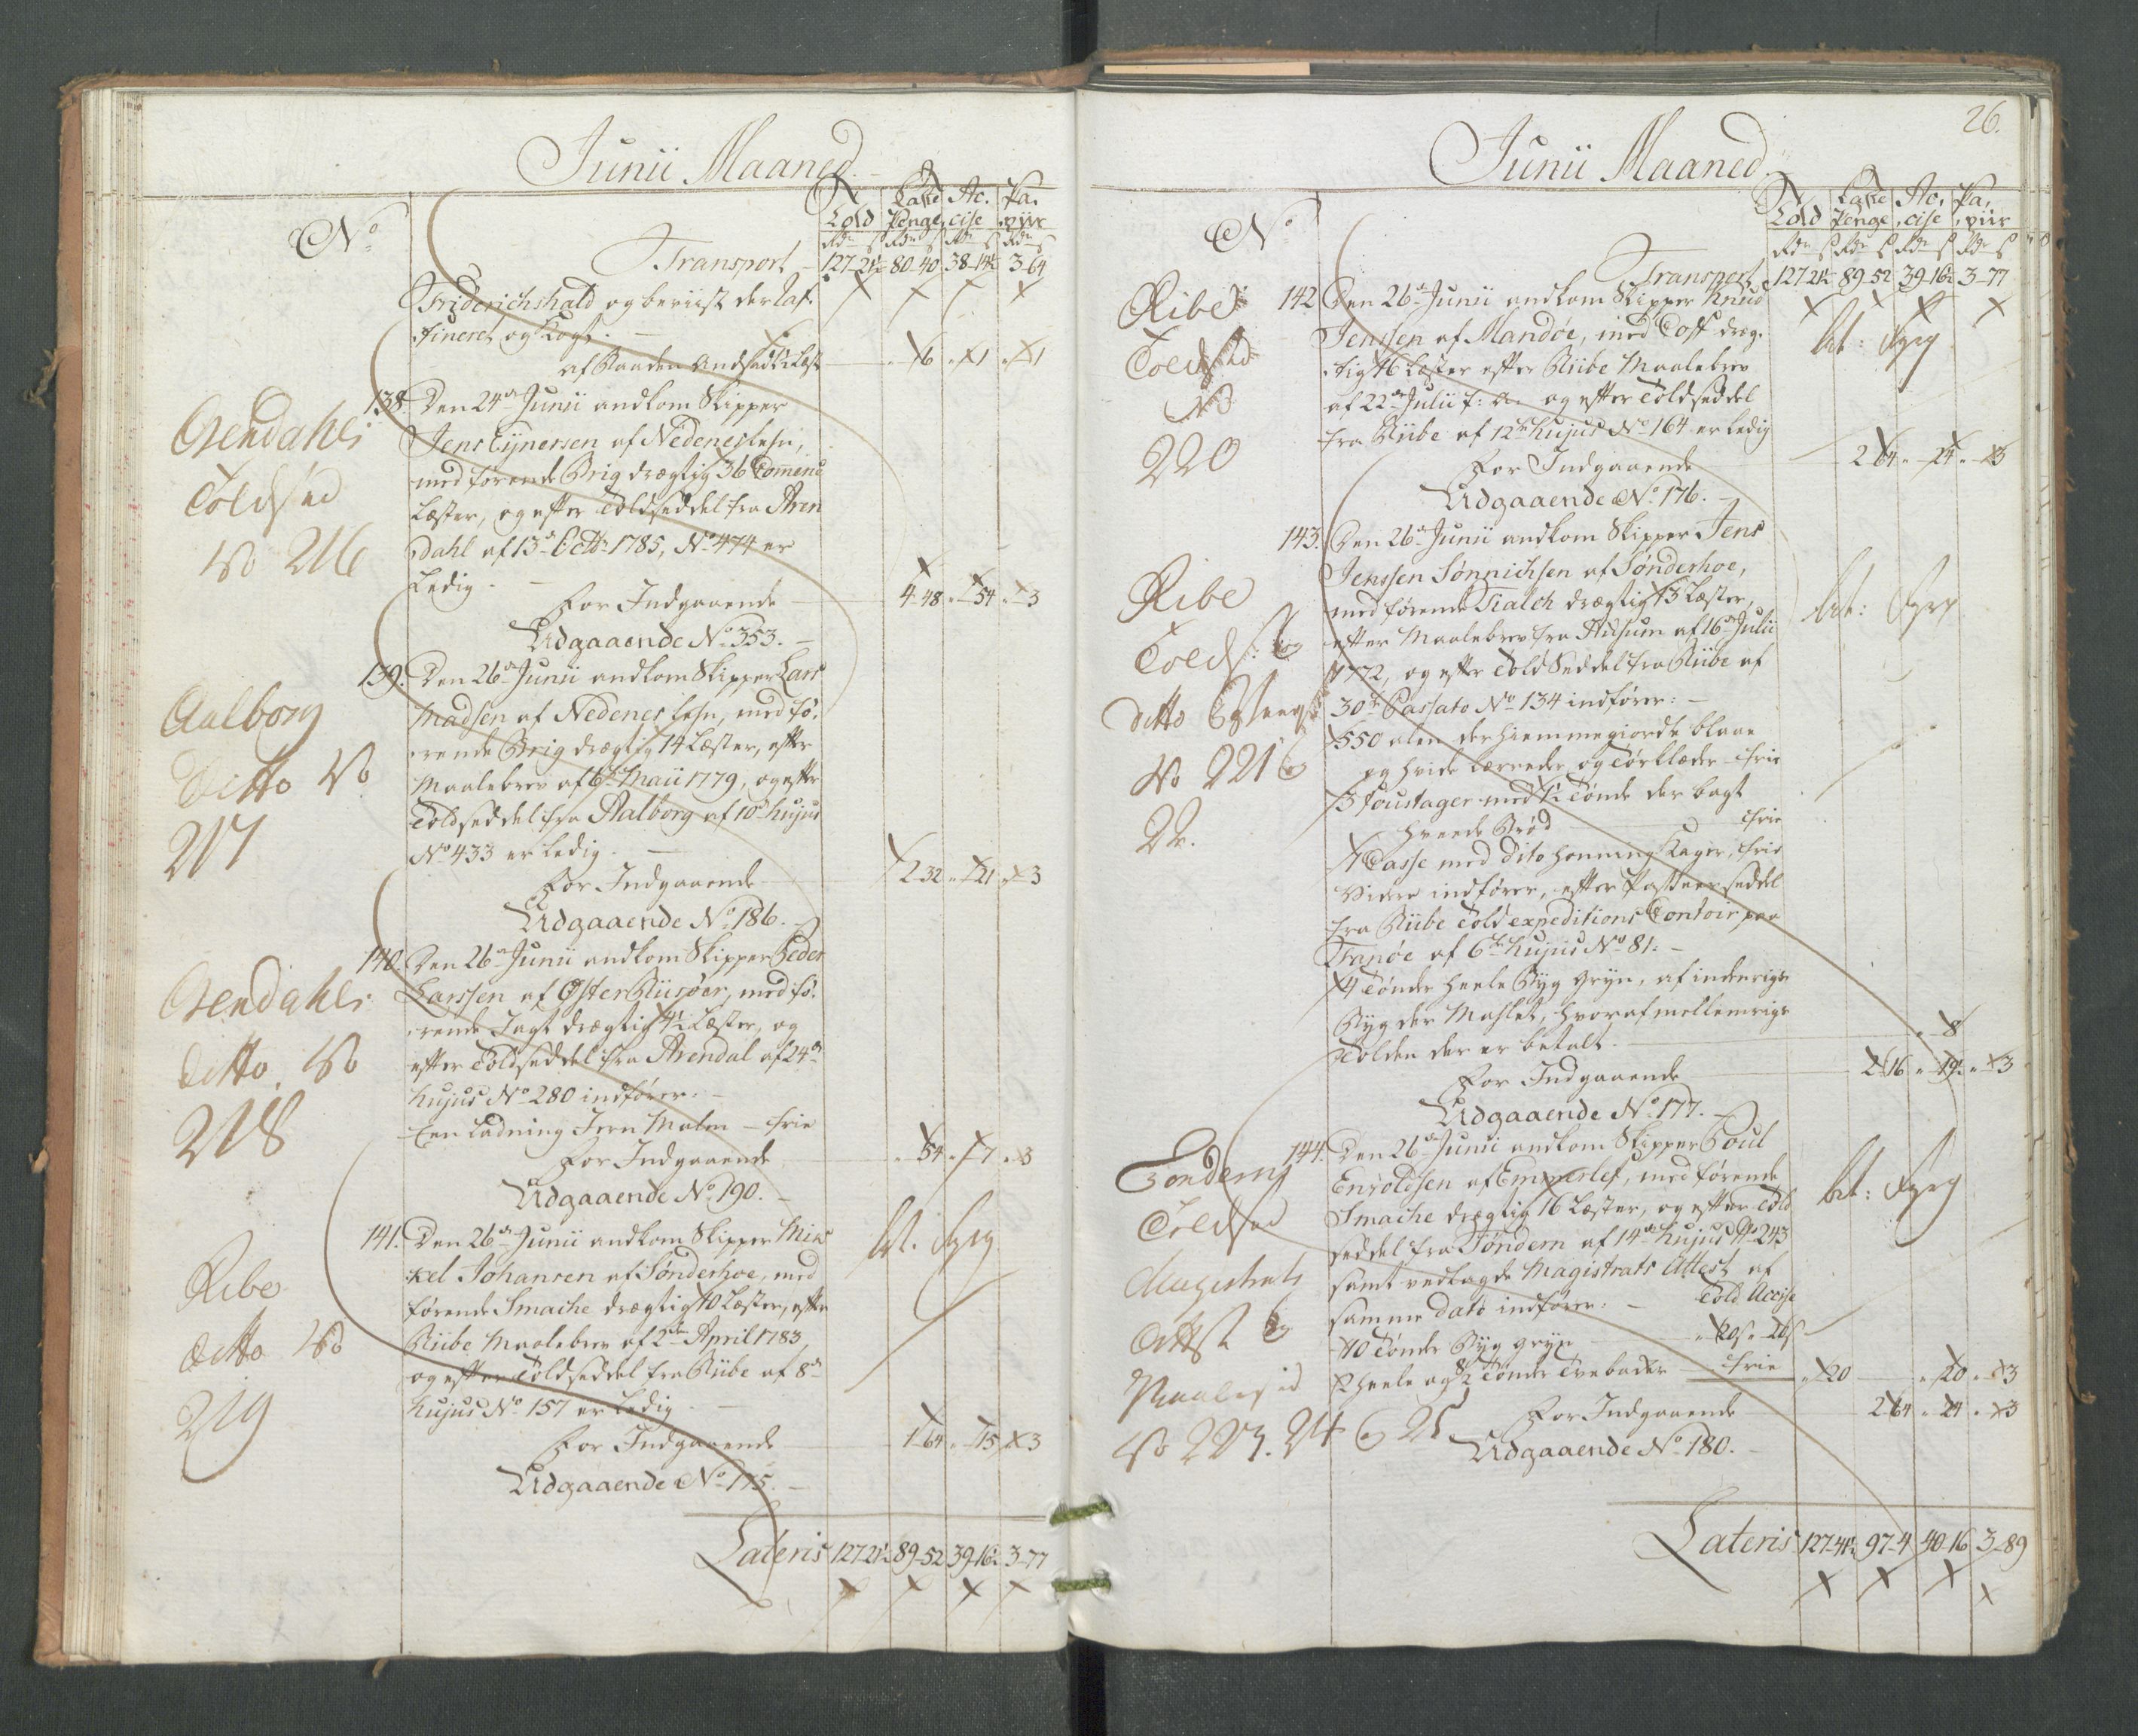 Junii Maaned.
No
Told
Laste Penge
Ac. cise
Pa. piir
Rdr s Rdr s Rdr s Rdr s
Transport 127-21½ 80-40 38-14½ 3-64
Friderichshald og beviist der
og
6 1 1
Arendahls
Toldsed
No 216
138. Den 24de Junii ankom Skipper
Jens Tynersen af Nedenes Lehn,
med førende Brig drægtig 36 Commerce
Læster, og efter Toldseddel fra Aren
Dahl af 13de Octbr 1785, No 474 er
Ledig.
For Indgaaende 4-48 54 3
Udgaaende No 353.
Aalborg
Ditto No
217
139. Den 26de Junii ankom Skipper Lars
Madsen af Nedenes Lehn, med fø-
rende Brig drægtig 14 Læster, efter
Maalebrev af 6te Maii 1779, og efter
Toldseddel fra Aalborg af 10de hujus
No 433 er ledig.
For Indgaaende 2-32 21 3
Udgaaende No 186.
Arendahls
Ditto No
218
140. Den 26de Junii ankom Skipper Peder
Larssen af Øster Riisøer, med fø-
rende Jagt drægtig 4½ Læster, og
efter Toldseddel fra Arendal af 24de
hujus No 280 indfører:
Een Ladning Jern Malm - frie
For Indgaaende 54 7 3
Udgaaende No 190.
Ribe
Ditto No
219
141. Den 26de Junii ankom Skipper Mic-
kel Johansen af Sønderhoe, med
bet. Fyrp
førende Smache drægtig 10 Læster, efter
Riibe Maalebrev af 2den April 1783,
og efter Toldseddel fra Riibe af 8de
hujus No 157 er ledig.
For Indgaaende 1-64 15 3
Udgaaende No 175.
Lateris 127-21½ 89-52 39-16½ 3-77
26.
Junii Maaned.
No
Told
Laste Penge
Ac, cise
Pa, piir
Rdr s Rdr s Rdr s Rdr s
Transport 127-21½ 89-52 39-16½ 3-77
Ribe
Toldsed
No
220
142 Den 26de Junii ankom Skipper Knud
Jenssen af Mandøe, med Toff dræg-
bet: Fyrp
tig 16 Læster efter Riibe Maalebrev
af 22de Julii f: a. og efter Toldseddel
fra Riibe af 12te hujus No 164 er ledig
For Indgaaende 2-64 24 3
Udgaaende No 176.
Ribe
Toldsed: og
ditto
No 221 &
22.
143. Den 26de Junii ankom Skipper Jens
Jenssen Sønnichsen af Sønderhoe,
med førende Tialch drægtig 13 Læster,
bet: Fyrp
efter Maalebrev fra Husum af 16de Julii
1772, og efter Told Seddel fra Riibe af
30te Passato No 134 indfører:
550 alen der hiemmegiorde blaae
og hvide Lærreder og Tørklæder - frie
3 Foustager med ½ Tønde der bagt
Hveede Brød frie
1 Casse med dito Honning Kager, frie
Videre indfører, efter Passeerseddel
fra Riibe Told expeditions Contoir paa
Fanøe af 6te hujus No 81.
4 Tønder heele Byg gryn, af indenrigs
Byg der Mahlet, hvoraf mellemrigs
Tolden der er betalt. 8
For Indgaaende 2-16 19½ 3
Udgaaende No 177.
Tondern
Toldsed
Magistrats
Attest &
Maalesed
No 223. 24 & 25
144. Den 26de Junii ankom Skipper Poul
Envoldsen af Emmerlef, med førende
bet: Fyrp
Smache drægtig 16 Læster, og efter Told
seddel fra Tøndern af 14de hujus No 243
samt vedlagde Magistrats Attest af
samme dato indfører: Told Accise
10 Tønder Byg gryn
2 heele og 8/2 Tønder Tvebacker frie 20 20 3
For Indgaaende 2-64 24 3
Udgaaende No 180.
Lateris 127-41½ 97-4 40-16 3-89